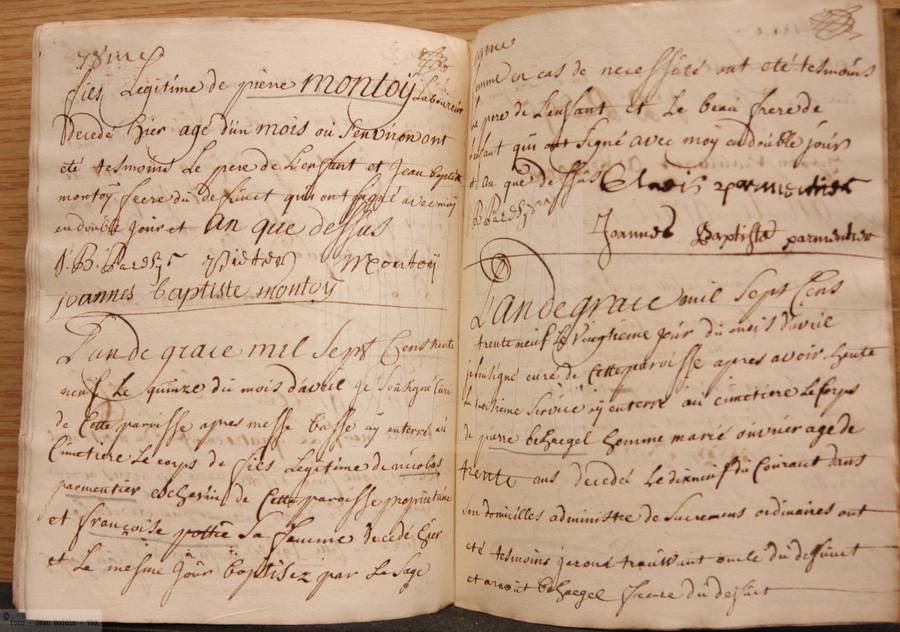 fils Legitime de pierre montoÿ Laboureur
Decedé hier agé d'un mois ou Environ ont
eté tesmoins Le pere de L'enfant et Jean baptiste
montoÿ frere du defunct qui ont signé avec moÿ
en double Jour et an que dessus
montoÿ
joannes baptiste montoÿ
L'an de grace mil sept Cens trente
neuf Le quinze du mois d'avril je soûsigné Curé
de Cette paroisse apres messe basse aÿ enterré au
Cimetiere Le corps de fils Legitime de nicolas
parmentier eschevin de Cette paroisse propriétaire
et françoise pottie sa femme decedé hier
et Le mesme jour baptisez par La sage
femme en cas de necessité ont eté tesmoins
Le pere de L'enfant et Le beau frere de
L'enfant qui ont signé avec moÿ en double jour
et an que dessus parmentier
Joannes Baptista parmentier
L'an de grace mil sept Cens
trente neuf Le vingtieme jour du mois d'avril
je soûsigné curé de Cette paroisse apres avoir chanté
Le troisieme service aÿ enterré au cimetiere Le Corps
de pierre behaegel homme marié ouvrier agé de
trente ans decedé Le dixneuf du Courant dans
son domicilles administré de sacremens ordinaires ont
eté tesmoins oncle du defunct
et arnoût behaegel frere du defunct